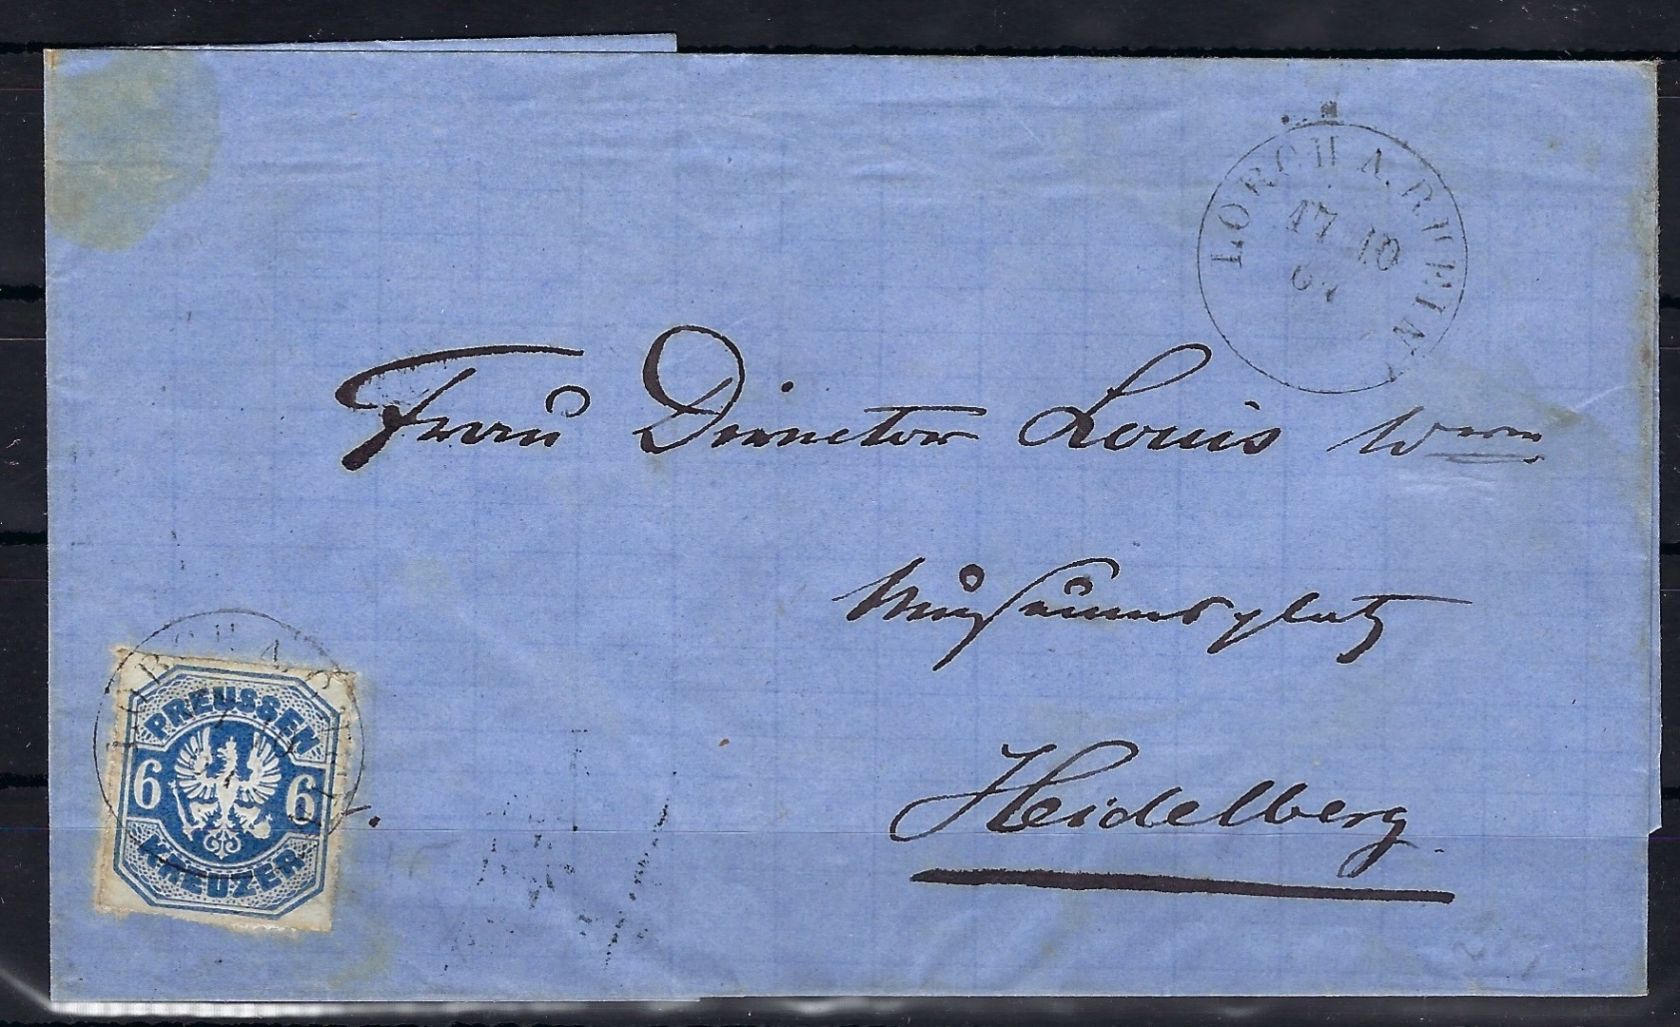 LORCH A. RHEIN
17 10
Frau Director Louis
Museumsplatz
LORCH A. RHEIN
PREUSSEN
6 6
KREUZER
Heidelberg